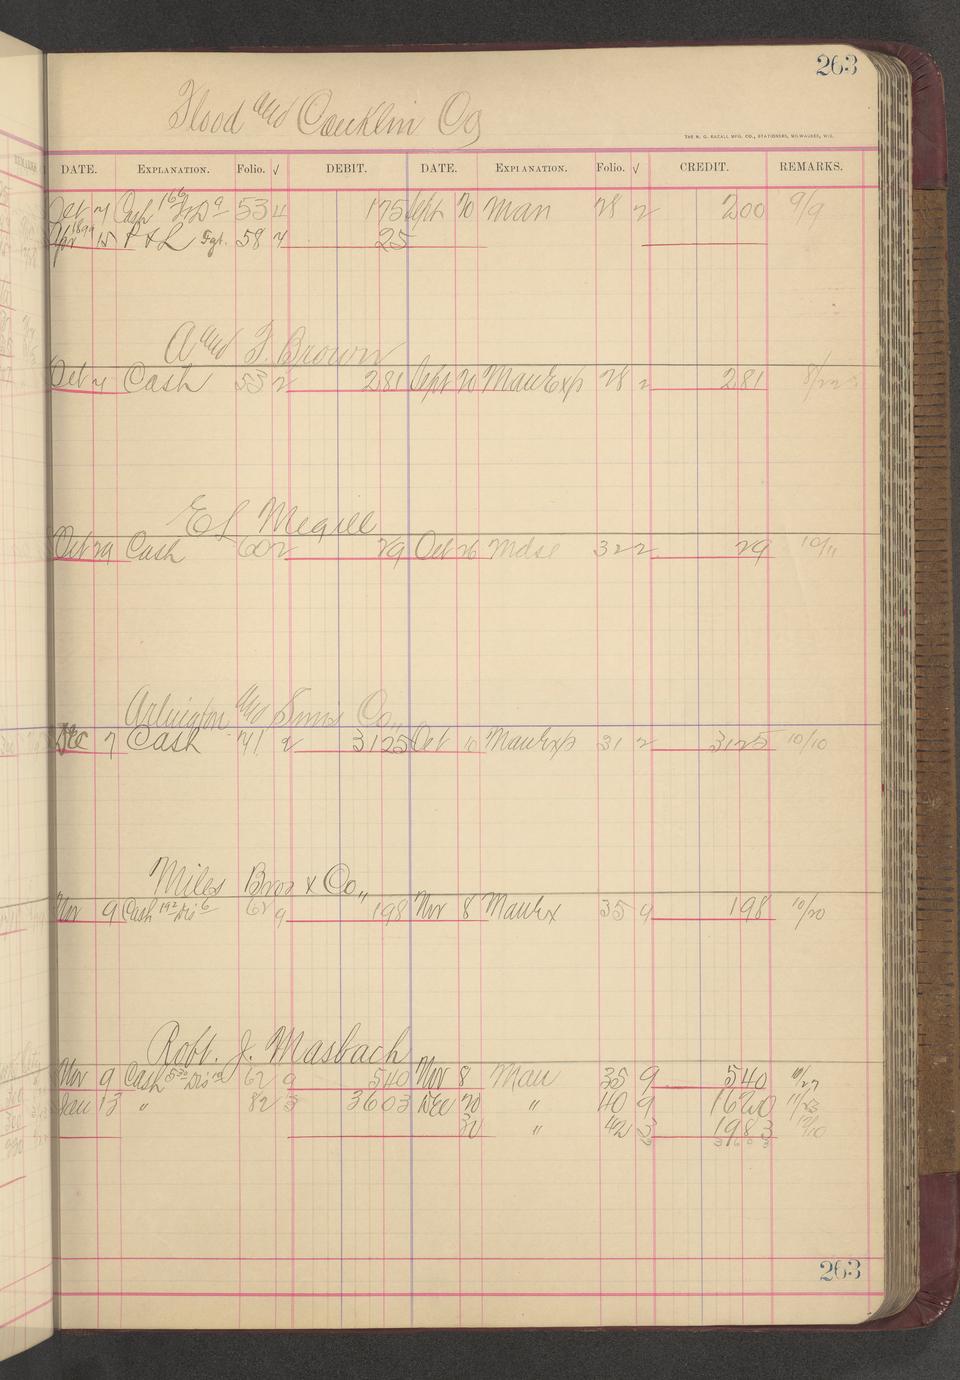 263
Flood and Conklin Co
THE H. G. RAZALL MFG. CO., STATIONERS, MILWAUKEE, WIS.
DATE. EXPLANATION. Folio. √ DEBIT. DATE. EXPLANATION. Folio. √ CREDIT. REMARKS.
Oct 4 Cash 53 4 175 Sept 20 Man 28 2 200 9/9
Apr 15 P & L 58 4 25
A and F. Brown
Oct 4 Cash 53 2 281 Sept 20 Man Exp 28 2 281
E L Megill
Oct 29 Cash 60 2 29 Oct 26 Mdse 32 2 29 10/11
Arlington and Sims Co,,
Dec 7 Cash 71 2 3125 Oct 10 Man Exp 31 2 3125 10/10
Miles Bros & Co,,
Nov 9 Cash 62 9 198 Nov 8 Man Ex 35 9 198 10/20
Robt. J. Masbach
Nov 9 Cash 62 9 540 Nov 8 Man 35 9 540 10/27
Jan 13 " 82 3 3603 Dec 20 " 40 9 1620
" 42 3 1983
3603
263